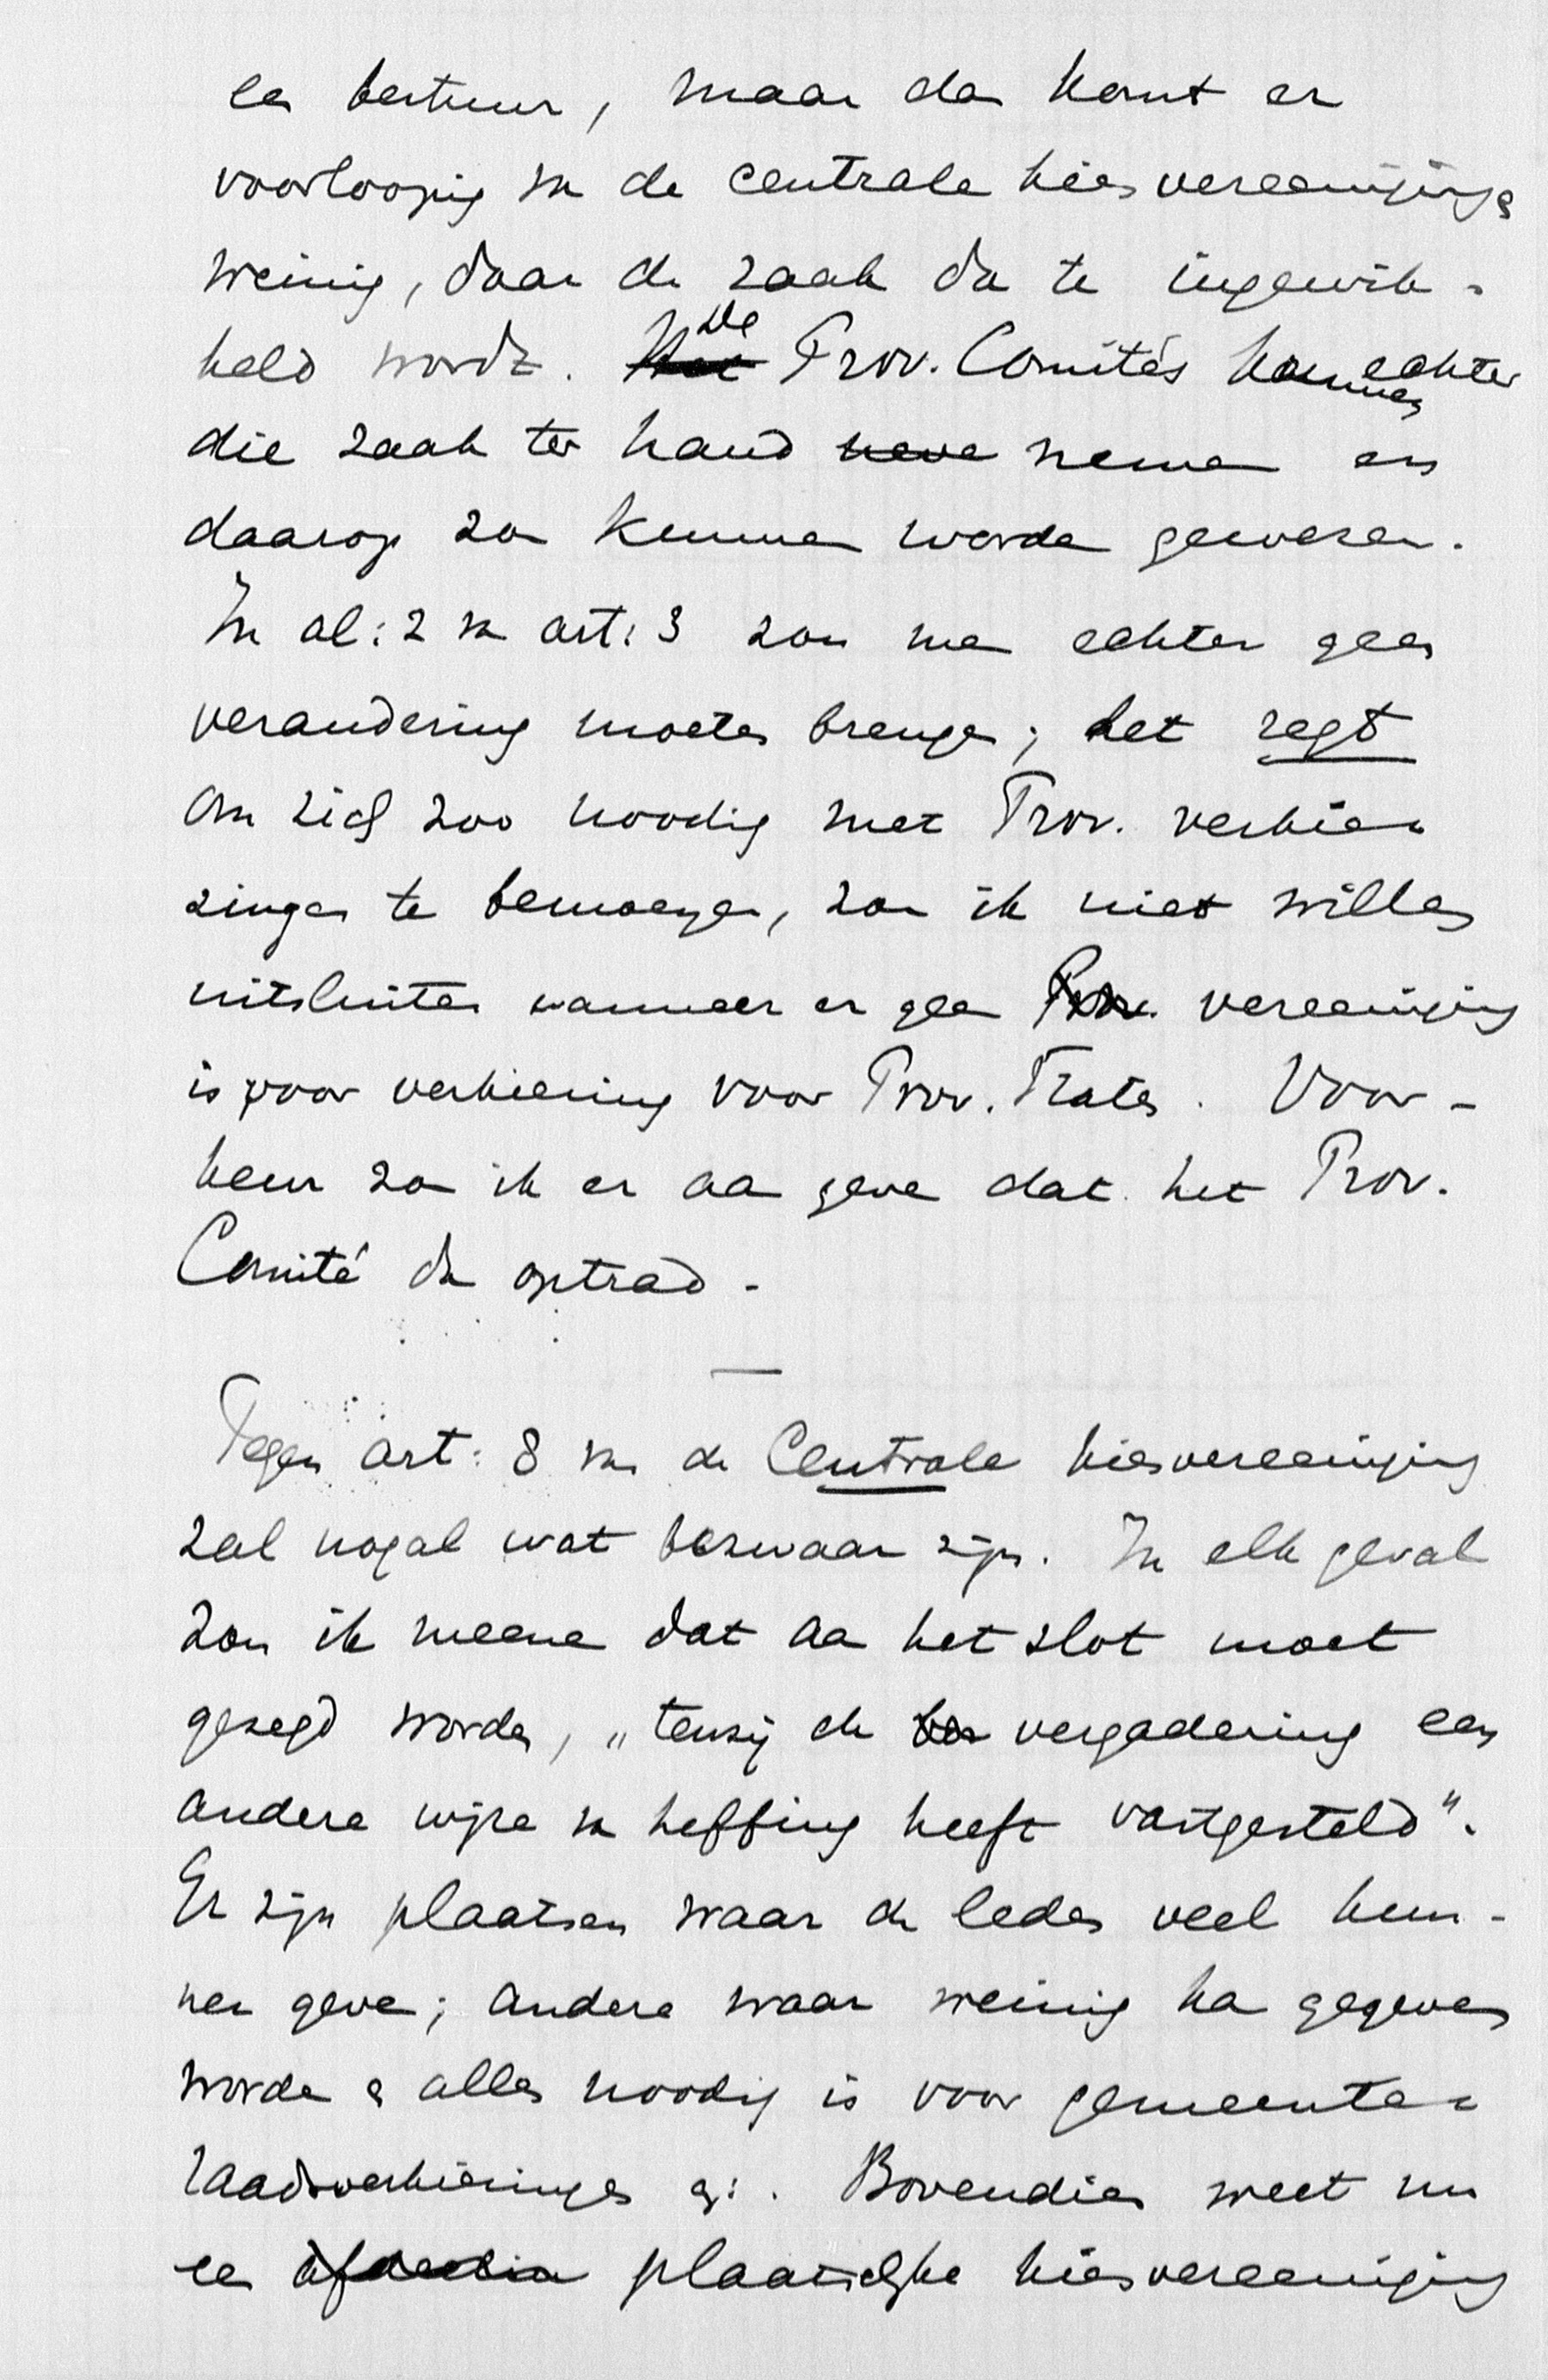 een bestuur, maar dan komt er
voorloopig van de centrale kiesvereenigings
weinig, daar de zaak dan te ingewik-
keld wordt. De Prov. Comités kunnen echter
die zaak ter hand nemen en
daarop zou kunnen worden gewezen.
In al: 2 van art: 3 zou men echter geen
verandering moeten brengen; het regt
om zich zoo noodig met Prov. verkie-
zingen te bemoeyen, zou ik niet willen
uitsluiten wanneer er geen vereeniging
is voor verkiezing voor Prov. Staten. Voor-
keur zou ik er aan geven dat het Prov.
Comité dan optrad.
Tegen art: 8 van de Centrale kiesvereeniging
zal nogal wat bezwaar zijn. In elk geval
zou ik meenen dat aan het slot moet
gezegd worden, „tenzij de vergadering een
andere wijze van heffing heeft vastgesteld".
Er zijn plaatsen waar de leden veel kun-
nen geven; andere waar weinig kan gegeven
worden & alles noodig is voor gemeente-
raadsverkiezingen
Bovendien weet nu
een plaatselijke kiesvereeniging